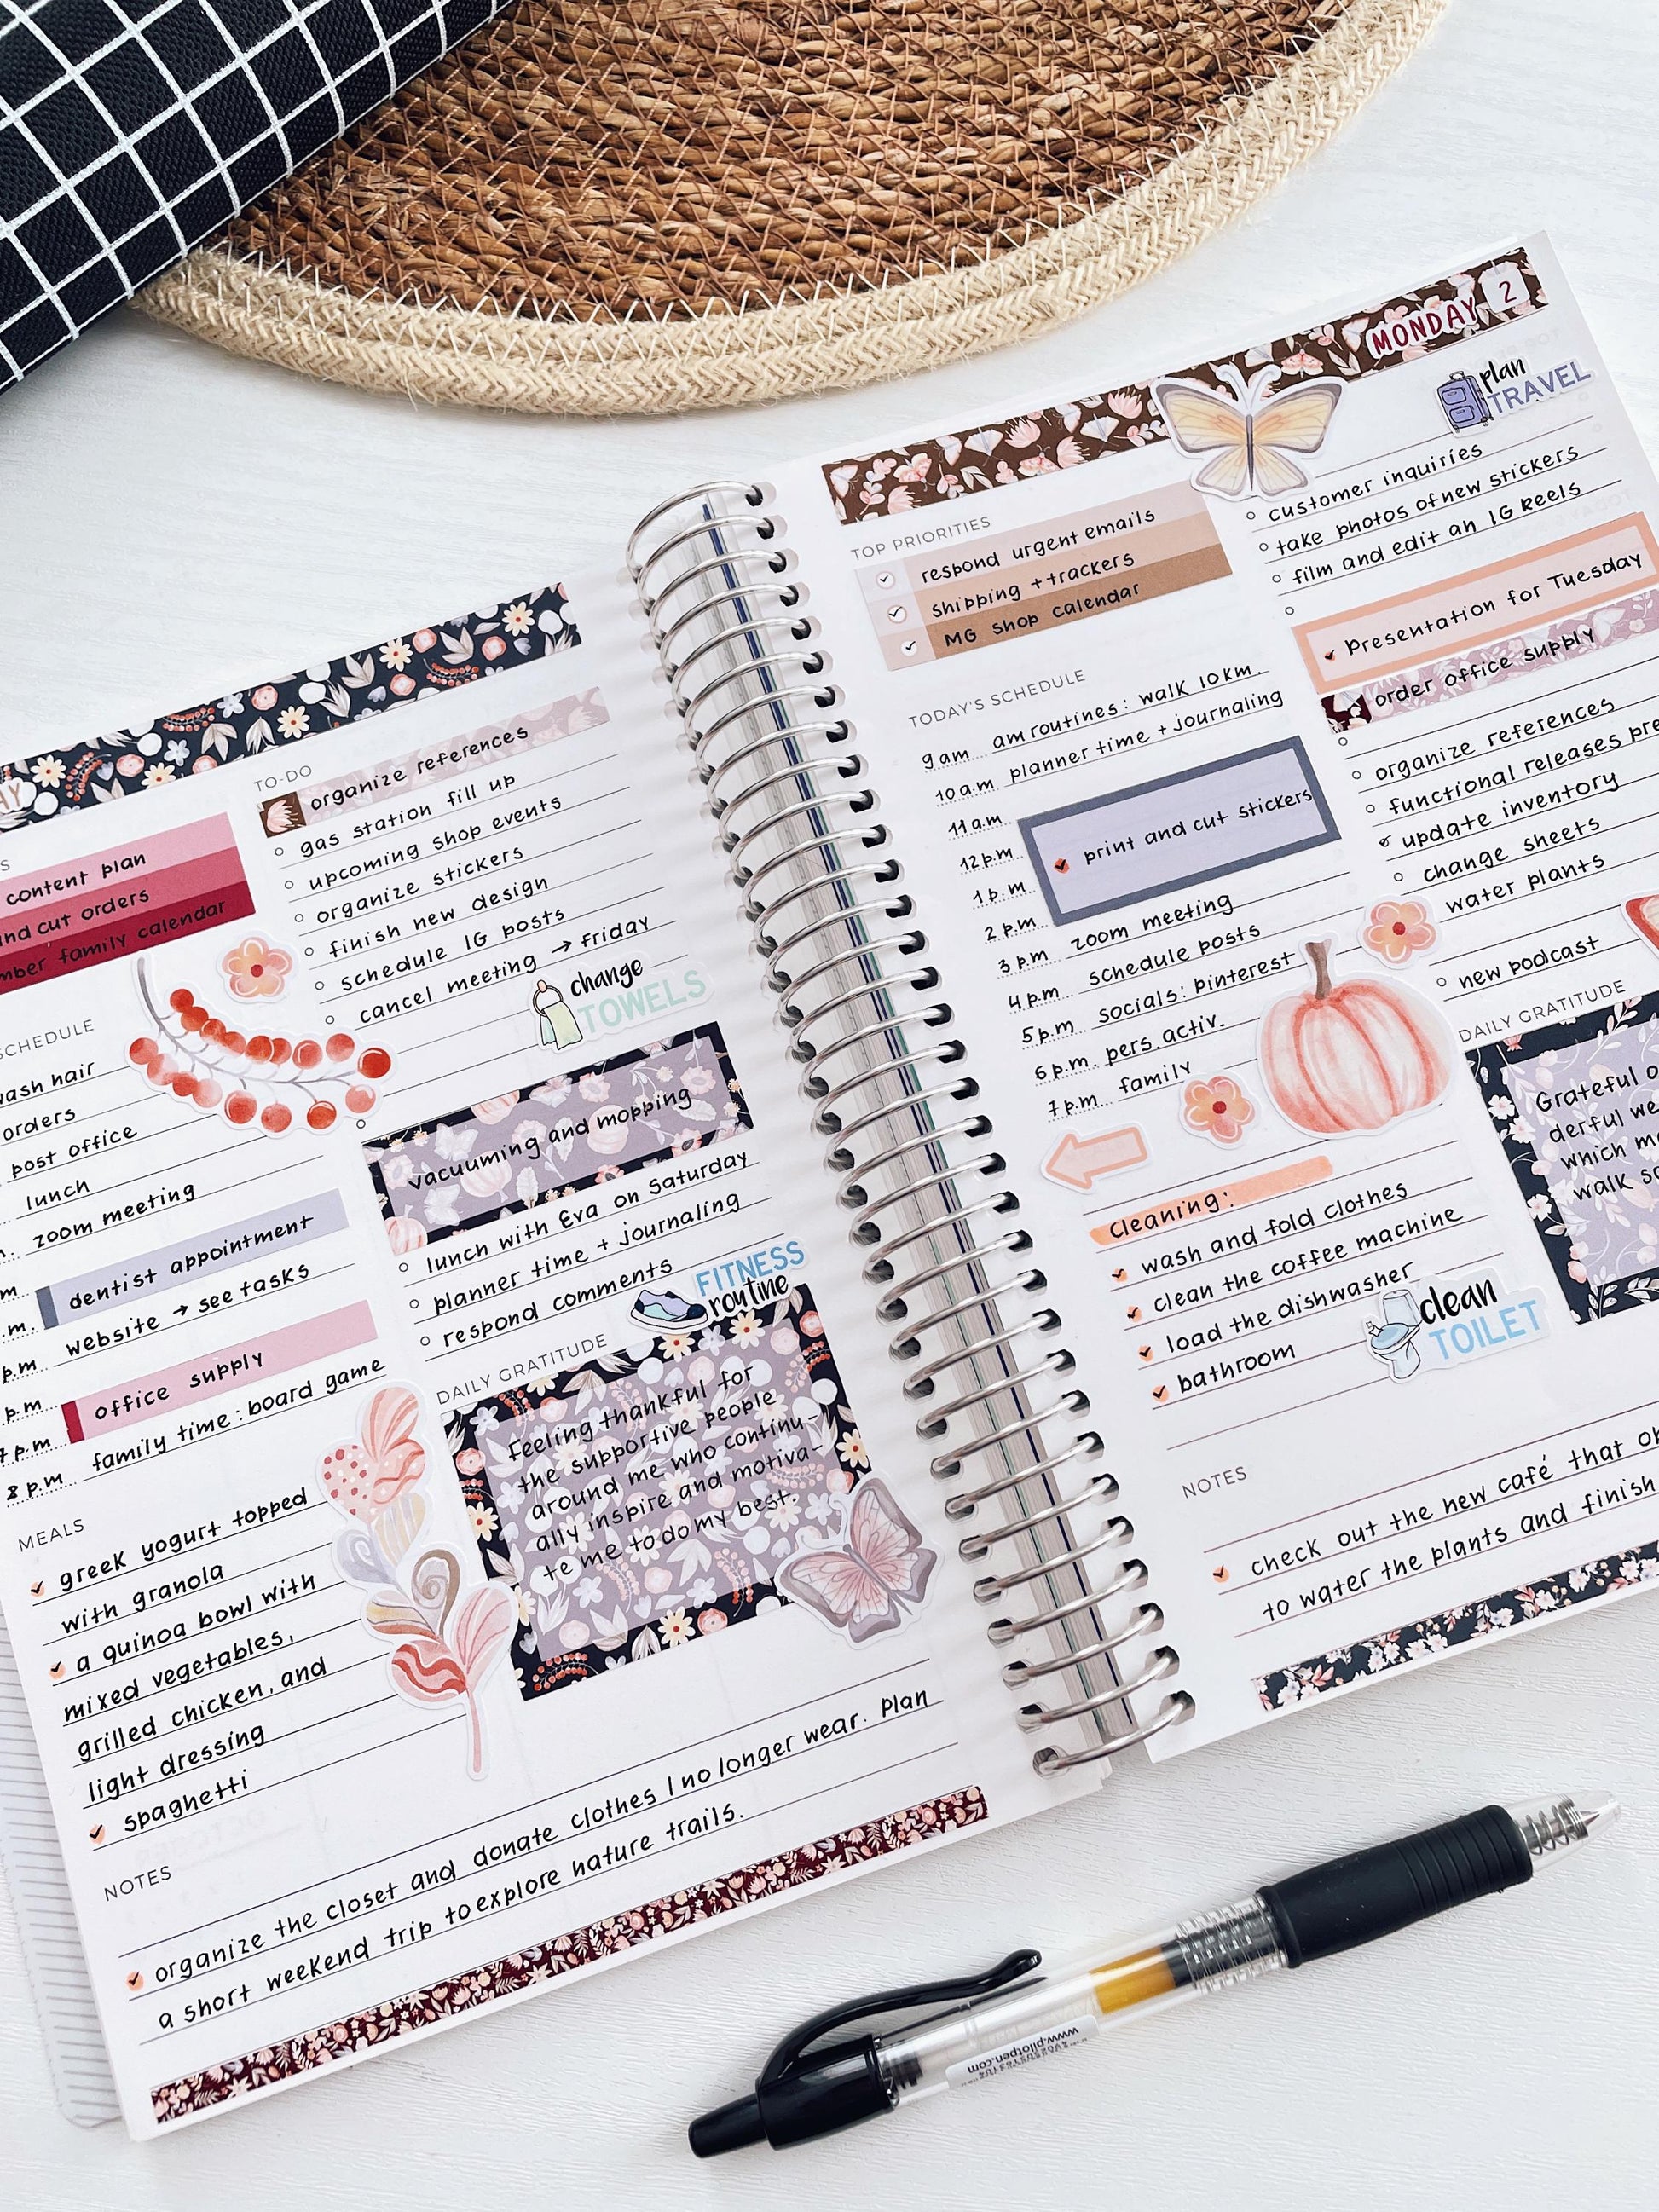 content plan
cut orders
family calendar
SCHEDULE
wash hair
orders
post office
lunch
zoom meeting
dentist appointment
website → see tasks
p.m
office supply
p.m
family time: board game
8 p.m.
MEALS
greek yogurt topped
with granola
a quinoa bowl with
mixed vegetables,
grilled chicken, and
light dressing
spaghetti
TO-DO
organize references
gas station fill up
upcoming shop events
organize stickers
finish new design
schedule IG posts
cancel meeting → Friday
change
TOWELS
vacuuming and mopping
lunch with Eva on Saturday
planner time + journaling
respond comments
FITNESS
routine
DAILY GRATITUDE
Feeling thankful for
the supportive people
around me who continu-
ally inspire and motiva-
te me to do my best.
NOTES
organize the closet and donate clothes I no longer wear. Plan
a short weekend trip to explore nature trails.
MONDAY 2
TOP PRIORITIES
respond urgent emails
shipping + trackers
MG Shop calendar
TODAY'S SCHEDULE
9 am am routines: walk 10 km.
10 a.m planner time + journaling
11 a.m
12 p.m print and cut stickers
1 p.m
2 p.m. zoom meeting
3 p.m schedule posts
4 p.m socials: pinterest
5 p.m pers. activ.
6 p.m. family
7 p.m.
Cleaning:
wash and fold clothes
clean the coffee machine
load the dishwasher
bathroom
clean
TOILET
plan
TRAVEL
customer inquiries
take photos of new stickers
film and edit an IG Reels
Presentation for Tuesday
order office supply
organize references
functional releases
update inventory
change sheets
water plants
new podcast
DAILY GRATITUDE
Grateful
derful
which
walk
NOTES
check out the new café that
to water the plants and finish
www.pilotpen.com